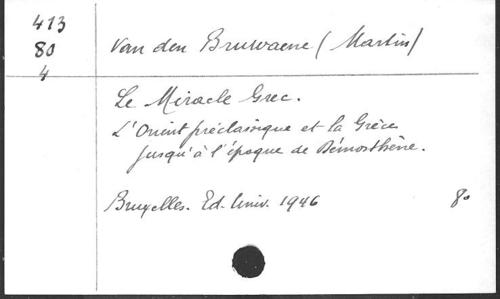 413
80
4
Van den Bruwaene (Martin)
Le Miracle Grec.
L'Orient préclassique et la Grèce
jusqu'à l'époque de Démosthène.
Bruxelles. Ed. Univ. 1946
8o